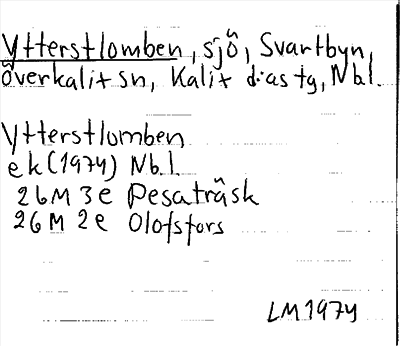 Ytterstlomben, sjö, Svartbyn,
överkalix sn, Kalix d:as tg, Nbl.
Ytterstlomben
ek (1974) Nb.l.
26M 3e Pesaträsk
26M 2e Olofsfors
LM 1974